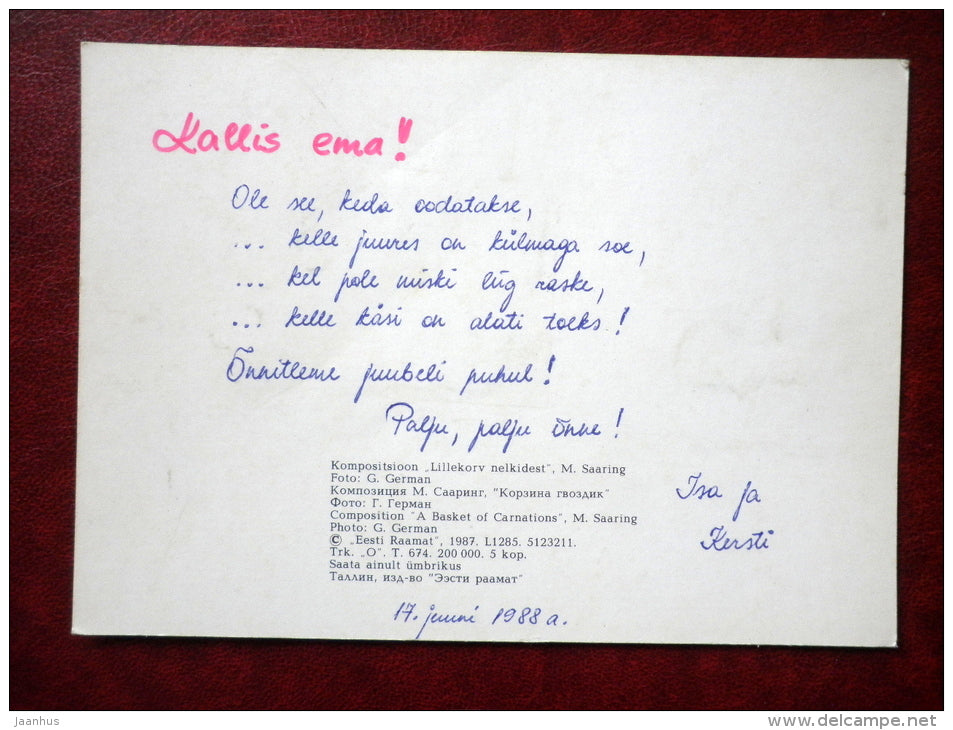 Kallis ema!
Ole see, keda oodatakse,
... kelle juures on külmaga soe,
... kel pole miski liig raske,
... kelle käsi on alati toeks!
Õnnitleme juubeli puhul!
Palju, palju õnne!
Isa ja
Kersti
Kompositsioon „Lillekorv nelkidest", M. Saaring
Foto: G. German
Композиция М. Сааринг, "Корзина гвоздик"
Фото: Г. Герман
Composition "A Basket of Carnations", M. Saaring
Photo: G. German
© „Eesti Raamat", 1987. L1285. 5123211.
Trk. „O". T. 674. 200 000. 5 kop.
Saata ainult ümbrikus
Таллин, изд-во "Ээсти раамат"
17. juuni 1988 a.
jaanhus
www.delcampe.net